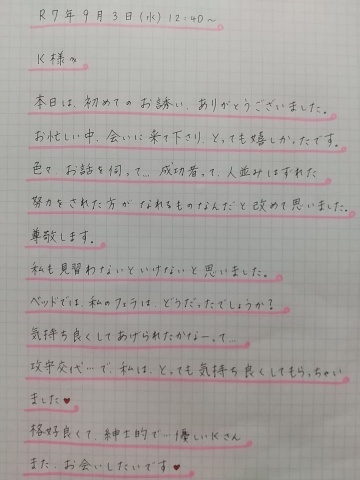 R7年9月3日(水)12:40〜
K様へ
本日は、初めてのお誘い、ありがとうございました。
お忙しい中、会いに来て下さり、とっても嬉しかったです。
色々、お話を伺って…成功者って、人並みはずれた
努力をされた方がなれるものなんだと改めて思いました。
尊敬します。
私も見習わないといけないと思いました。
ベッドでは、私のフェラは、どうだったでしょうか?
気持ち良くしてあげられたかなーって…
攻守交代…で、私は、とっても気持ち良くしてもらっちゃい
ました♥
格好良くて、紳士的で…優しいKさん
また、お会いしたいです♥